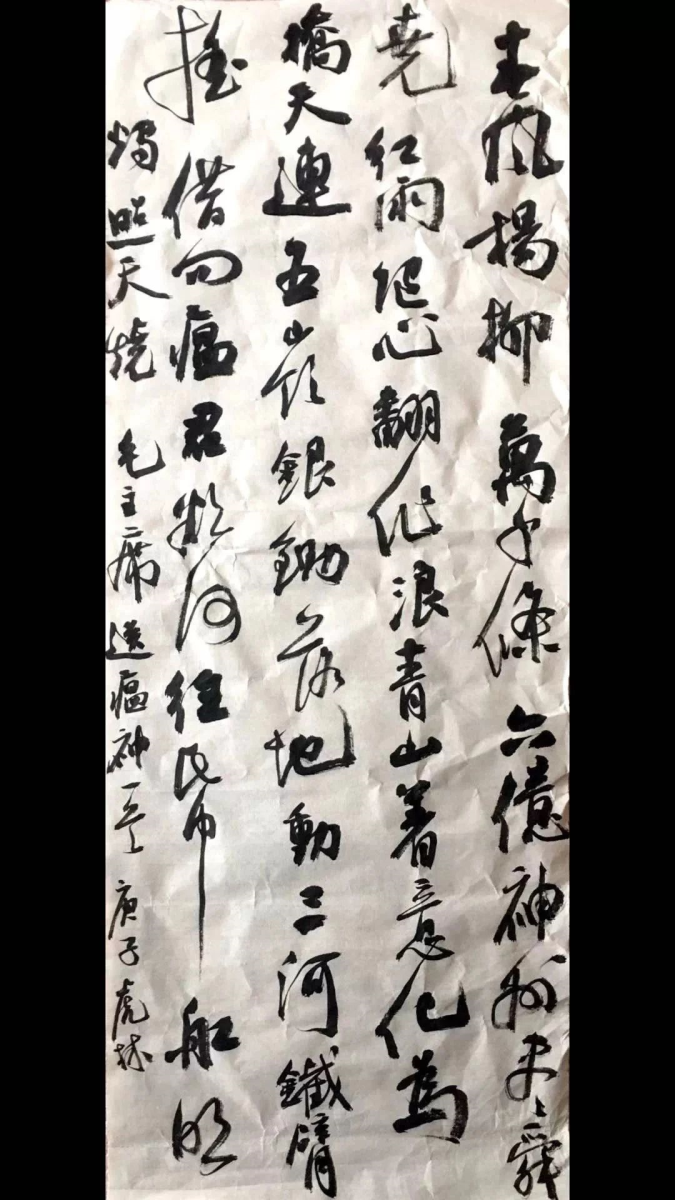 春風揚柳萬千條六億神州盡舜
堯紅雨隨心翻作浪青山着意化為
橋天連五嶺銀鋤落地動三河鐵臂
搖借问瘟君欲何往民币船明
燭照天燒毛主席送瘟神一首庚子虎林